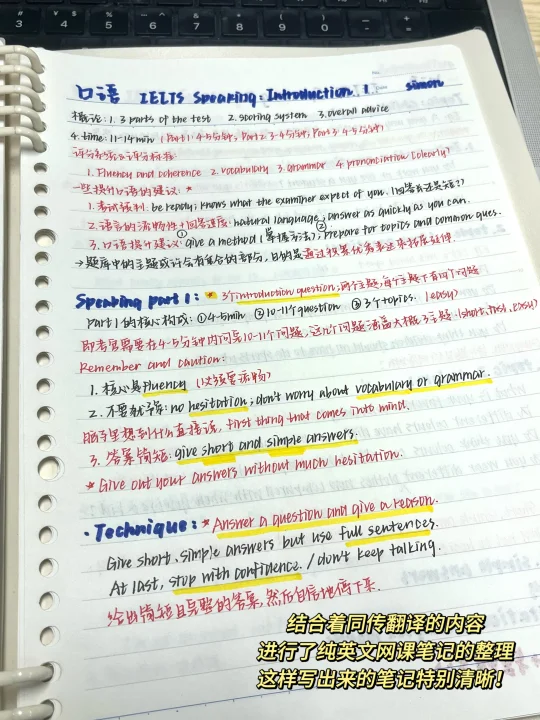 口语 IELTS Speaking: Introduction 1 simon
概论: 1. 3 parts of the test 2. scoring system 3. overall advice
4. time: 11-14min (Part1: 4-5分钟, Part2: 3-4分钟, Part3: 4-5分钟)
评分系统及评分标准:
1. Fluency and coherence 2. vocabulary 3. grammar 4. pronunciation (clearly)
一些提升口语的建议: *
1. 考试规则: be ready; knows what the examiner expect of you. (回答长还是短??)
2. 语言的流畅性+回答速度: natural language; answer as quickly as you can.
3. 口语提升建议: ① give a method (掌握方法); ② prepare for topics and common ques.
→题库中的主题或许会有重合的部分, 目的是通过积累优秀表来拓展延伸.
Speaking part 1: * 3个introduction question; 两个主题, 每个主题下有四个问题
Part 1的核心构成: ①4-5min ②10-11个question ③3个topics. (easy)
即考官需要在4-5分钟内问完10-11个问题, 这几个问题涵盖大概3主题. (short, fast, easy)
Remember and caution:
1. 核心是fluency
2. 不要犹豫: no hesitation; don't worry about vocabulary or grammar.
脑子里想到什么直接说, first thing that comes into mind.
3. 答案简短: give short and simple answers.
* Give out your answers without much hesitation.
· Technique: * Answer a question and give a reason.
Give short, simple answers but use full sentences.
At last, stop with confidence. / don't keep talking.
给出简短且完整的答案, 然后自信地停下来.
结合着同传翻译的内容
进行了纯英文网课笔记的整理
这样写出来的笔记特别清晰!